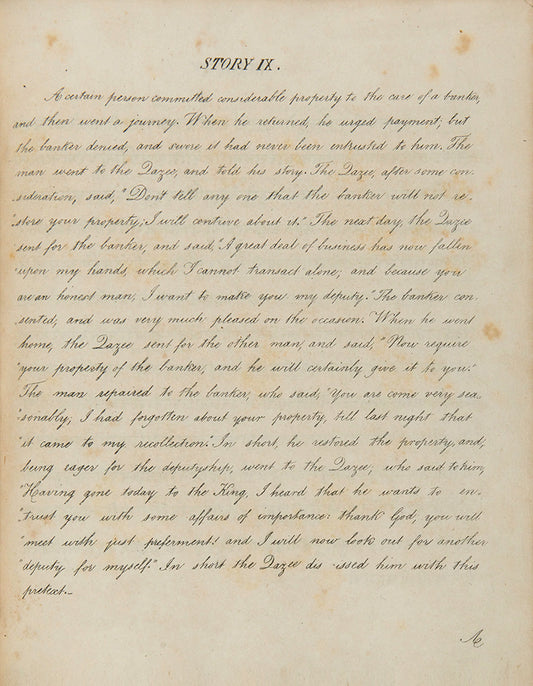 STORY IX.
A certain person committed considerable property to the care of a banker,
and then went a journey. When he returned, he urged payment; but
the banker denied, and swore it had never been entrusted to him. The
man went to the Qazee, and told his story. The Qazee, after some con-
sideration, said, "Don't tell any one that the banker will not re-
"store your property; I will contrive about it." The next day, the Qazee
sent for the banker, and said, "A great deal of business has now fallen
"upon my hands, which I cannot transact alone; and because you
are an honest man, I want to make you my deputy." The banker con-
sented, and was very much pleased on the occasion. When he went
home, the Qazee sent for the other man, and said, "Now require
"your property of the banker, and he will certainly give it to you."
The man repaired to the banker, who said, "You are come very sea-
"sonably; I had forgotten about your property, till last night that
"it came to my recollection." In short, he restored the property, and,
being eager for the deputyship, went to the Qazee; who said to him,
"Having gone today to the King, I heard that he wants to en-
"trust you with some affairs of importance: thank God, you will
"meet with just preferment! and I will now look out for another
"deputy for myself." In short the Qazee dis issed him with this
pretext._
A